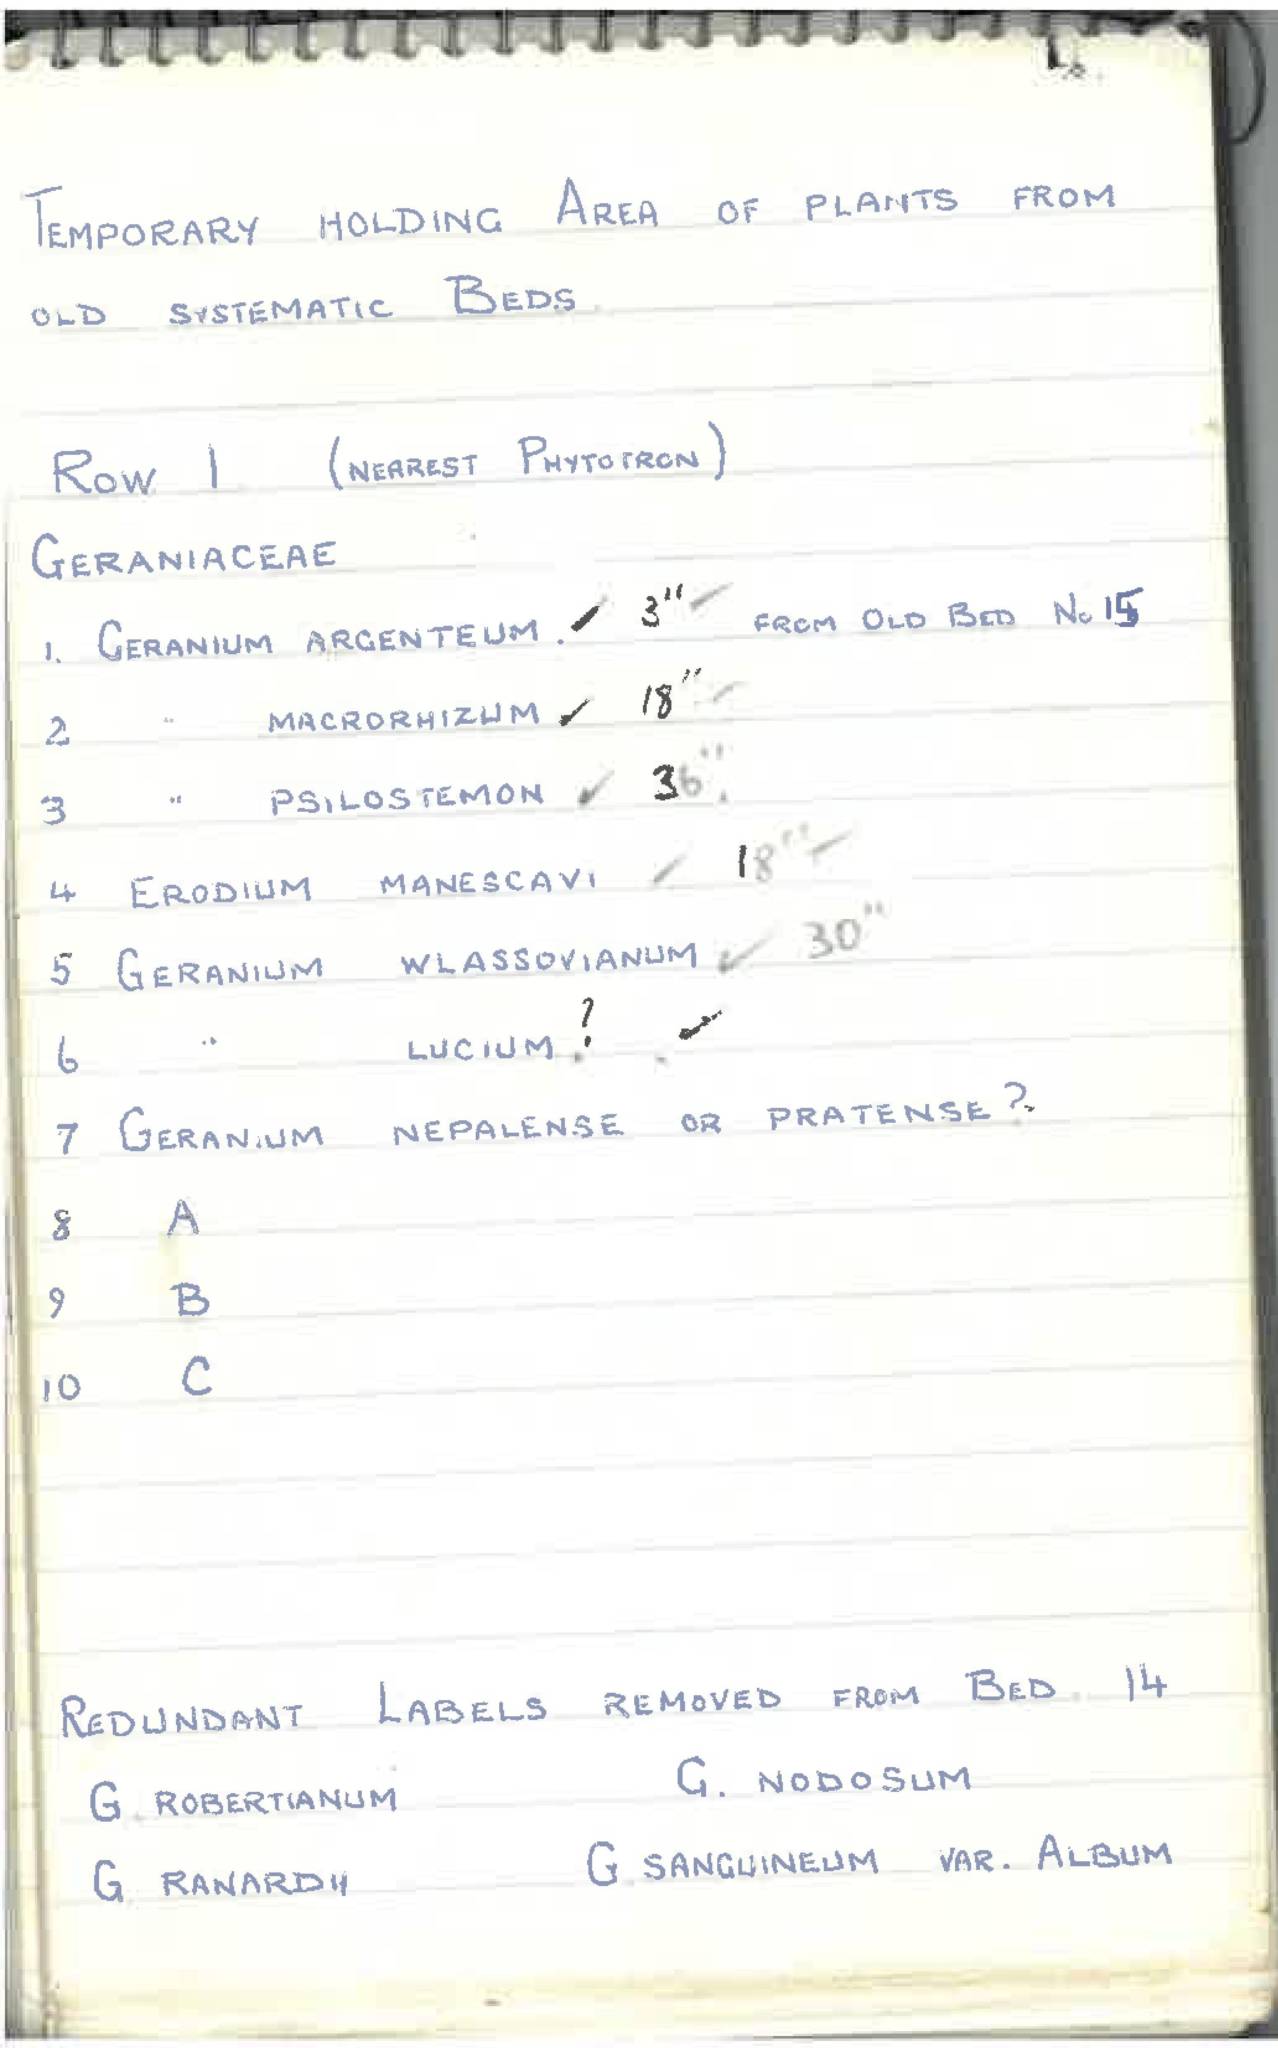 1.
TEMPORARY HOLDING AREA OF PLANTS FROM
OLD SYSTEMATIC BEDS
ROW 1 (NEAREST PHYTOTRON)
GERANIACEAE
1. GERANIUM ARGENTEUM. ✓ 3" ✓ FROM OLD BED No 15
2 " MACRORHIZUM ✓ 18" ✓
3 " PSILOSTEMON ✓ 36".
4 ERODIUM MANESCAVI ✓ 18" ✓
5 GERANIUM WLASSOVIANUM ✓ 30"
6 " LUCIUM ? ✓
7 GERANIUM NEPALENSE OR PRATENSE ?
8 A
9 B
10 C
REDUNDANT LABELS REMOVED FROM BED 14
G ROBERTIANUM G. NODOSUM
G RANARDII G SANGUINEUM VAR. ALBUM